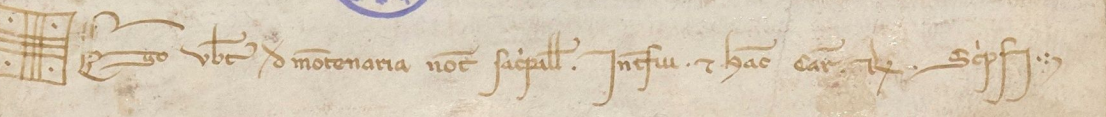 Ego vbt d montenaria not sac pall. Intfui. et hac car. R. Scpsi